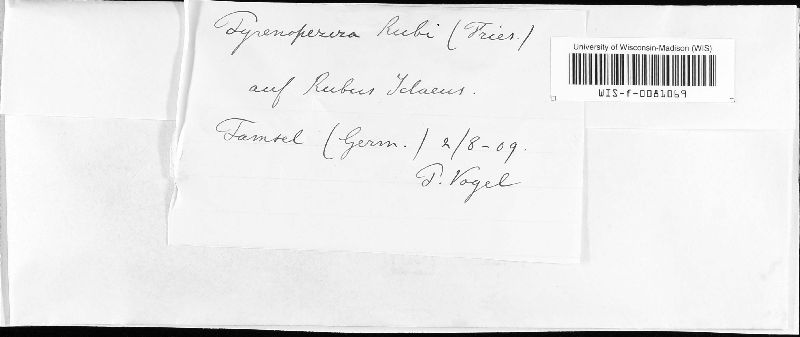 Pyrenopeziza Rubi (Fries.)
auf Rubus Idaeus.
Tamsel (Germ.) 2/8-09.
P. Vogel
University of Wisconsin-Madison (WIS)
WIS-f-0081069